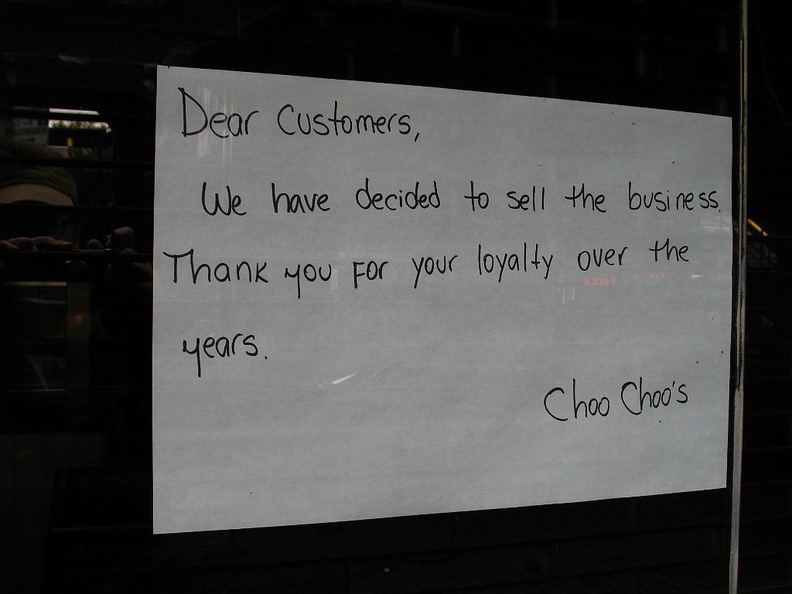 Dear Customers,
We have decided to sell the business.
Thank you for your loyalty over the
years.
Choo Choo's